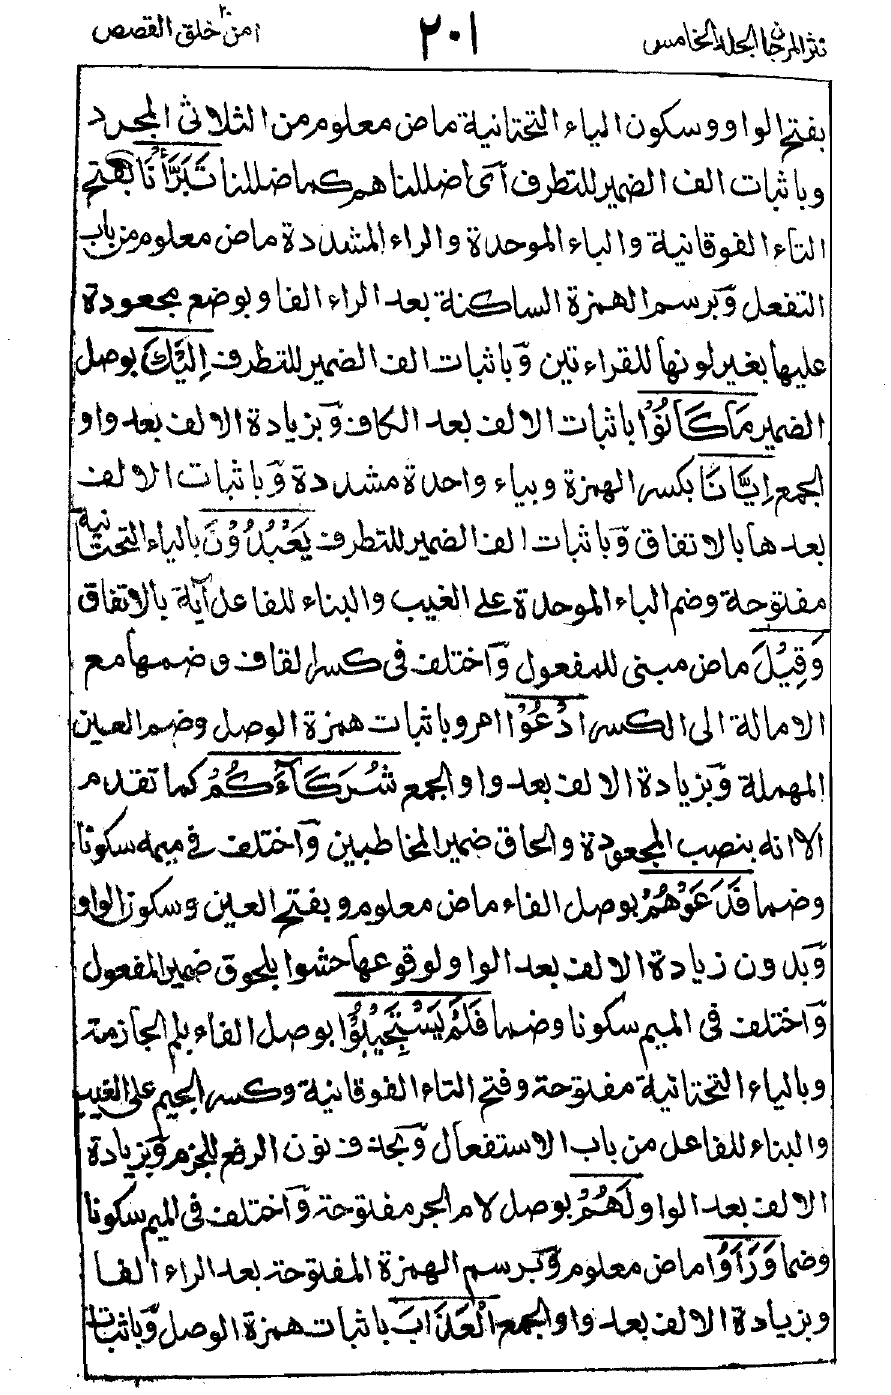 نثر المرجان الجلد الخامس ٢٠١ امن خلق القصص
بفتح الواو وسكون الياء التحتانية ماض معلوم من الثلاثي المجرد
وباثبات الف الضمير للتطرف اى اضللناهم كما ضللنا تَبَرَّأْنَا بفتح
التاء الفوقانية والباء الموحدة والراء المشددة ماض معلوم من باب
التفعل وَبرسم الهمزة الساكنة بعد الراء الفا وبوضع مجعودة
عليها بغير لونها للقراءتين وَباثبات الف الضمير للتطرف اِلَيْكَ بوصل
الضمير مَا كَانُوْا باثبات الالف بعد الكاف وَبزيادة الالف بعد واو
الجمع اِيَّانَا بكسر الهمزة وبياء واحدة مشددة وَباثبات الالف
بعدها بالاتفاق وَباثبات الف الضمير للتطرف يَعْبُدُوْنَ بالياء التحتانية
مفتوحة وضم الباء الموحدة على الغيب والبناء للفاعل آية بالاتفاق
وَقِيْلَ ماض مبنى للمفعول وَاختلف فى كسر القاف وضمها مع
الامالة الى الكسر ادْعُوْا امر وباثبات همزة الوصل وضم العين
المهملة وَبزيادة الالف بعد واو الجمع شُرَكَآءَكُمْ كما تقدم
الا انه بنصب المجعودة والحاق ضمير المخاطبين وَاختلف فى ميمه سكونا
وضما فَدَعَوْهُمْ بوصل الفاء ماض معلوم وبفتح العين وسكون الواو
وَبدون زيادة الالف بعد الواو لوقوعها حشوا بلحوق ضمير المفعول
وَاختلف فى الميم سكونا وضما فَلَمْ يَسْتَجِيْبُوْا بوصل الفاء بلم الجازمة
وبالياء التحتانية مفتوحة وفتح التاء الفوقانية وكسر الجيم على الغيب
والبناء للفاعل من باب الاستفعال وَبحذف نون الرفع للجزم وَبزيادة
الالف بعد الواو لَهُمْ بوصل لام الجر مفتوحة وَاختلف فى الميم سكونا
وضما وَرَاَوُا ماض معلوم وَبرسم الهمزة المفتوحة بعد الراء الفا
وبزيادة الالف بعد واو الجمع الْعَذَابَ باثبات همزة الوصل وَباثبات